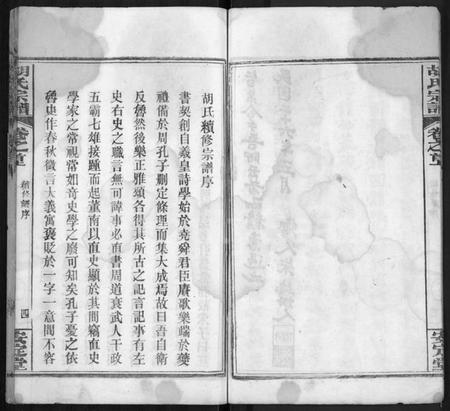 胡氏宗譜
卷之首
安定堂
胡氏續修宗譜序
書契創自羲皇詩學始於堯舜君臣賡歌樂端於夔
禮備於周孔子刪定條理而集大成焉故曰吾自衛
反魯然後樂正雅頌各得其所古之記言記事有左
史右史之職言無可諱事必直書周道衰武人干政
五霸七雄接踵而起董南以直史顯於其間竊直史
學家之常視常如奇史學之廢可知矣孔子憂之依
魯史作春秋微言大義寓褒貶於一字一意間不容
胡氏宗譜
卷之首
續修譜序
四
安定堂